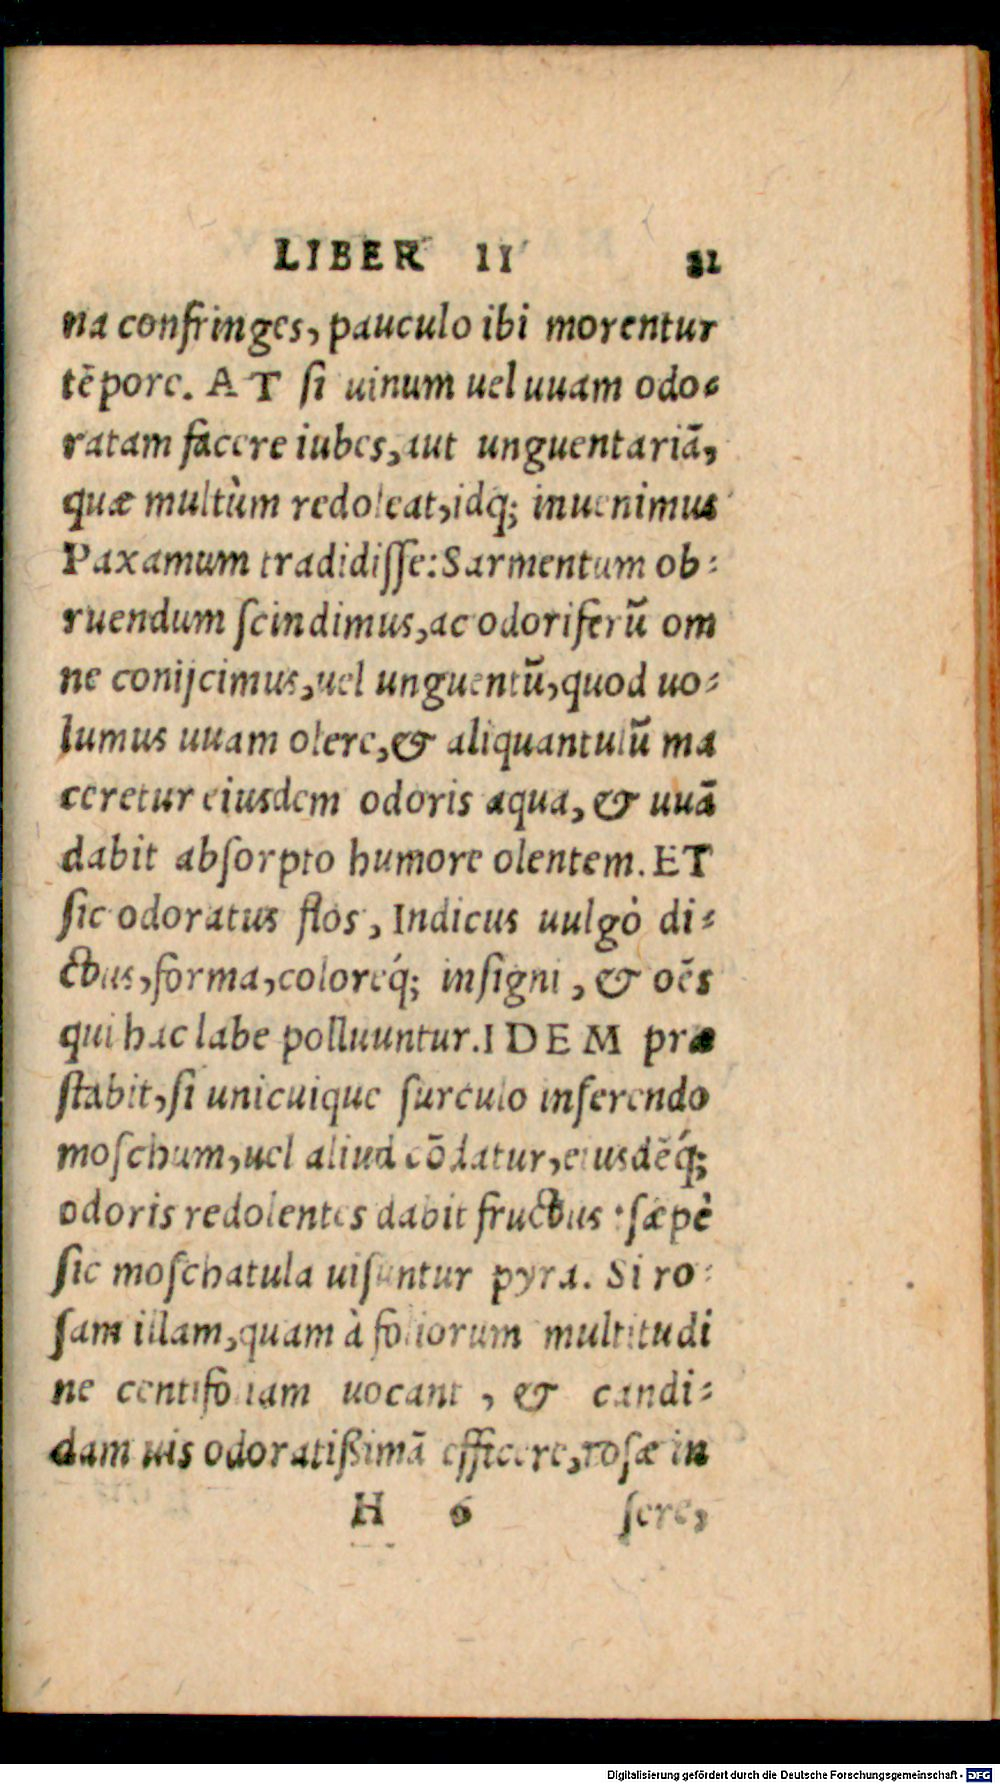 LIBER II 82
na confringes, pauculo ibi morentur
tẽpore. AT ſi uinum uel uuam odo⸗
ratam facere iubes, aut unguentariã,
quæ multùm redoleat, idq; inuenimus
Paxamum tradidiſſe: Sarmentum ob⸗
ruendum ſcindimus, ac odoriferũ om
ne conijcimus, uel unguentũ, quod uo⸗
lumus uuam olere, & aliquantulũ ma
ceretur eiusdem odoris aqua, & uuã
dabit abſorpto humore olentem. ET
ſic odoratus flos, Indicus uulgò di⸗
ctus, forma, coloreq́; inſigni, & oẽs
qui hac labe polluuntur. IDEM præ
ſtabit, ſi unicuique ſurculo inſerendo
moſchum, uel aliud cõdatur, eiusdẽq́;
odoris redolentes dabit fructus: ſæpè
ſic moſchatula uiſuntur pyra. Si ro⸗
ſam illam, quam à foliorum multitudi
ne centifoliam uocant, & candi⸗
dam uis odoratißimã efficere, roſæ in
H 6 ſere,
Digitalisierung gefördert durch die Deutsche Forschungsgemeinschaft - DFG